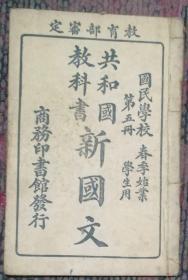 定審部育教
國民學校 春季始業
第五冊 學生用
共和國
教科書
新國文
商務印書館發行